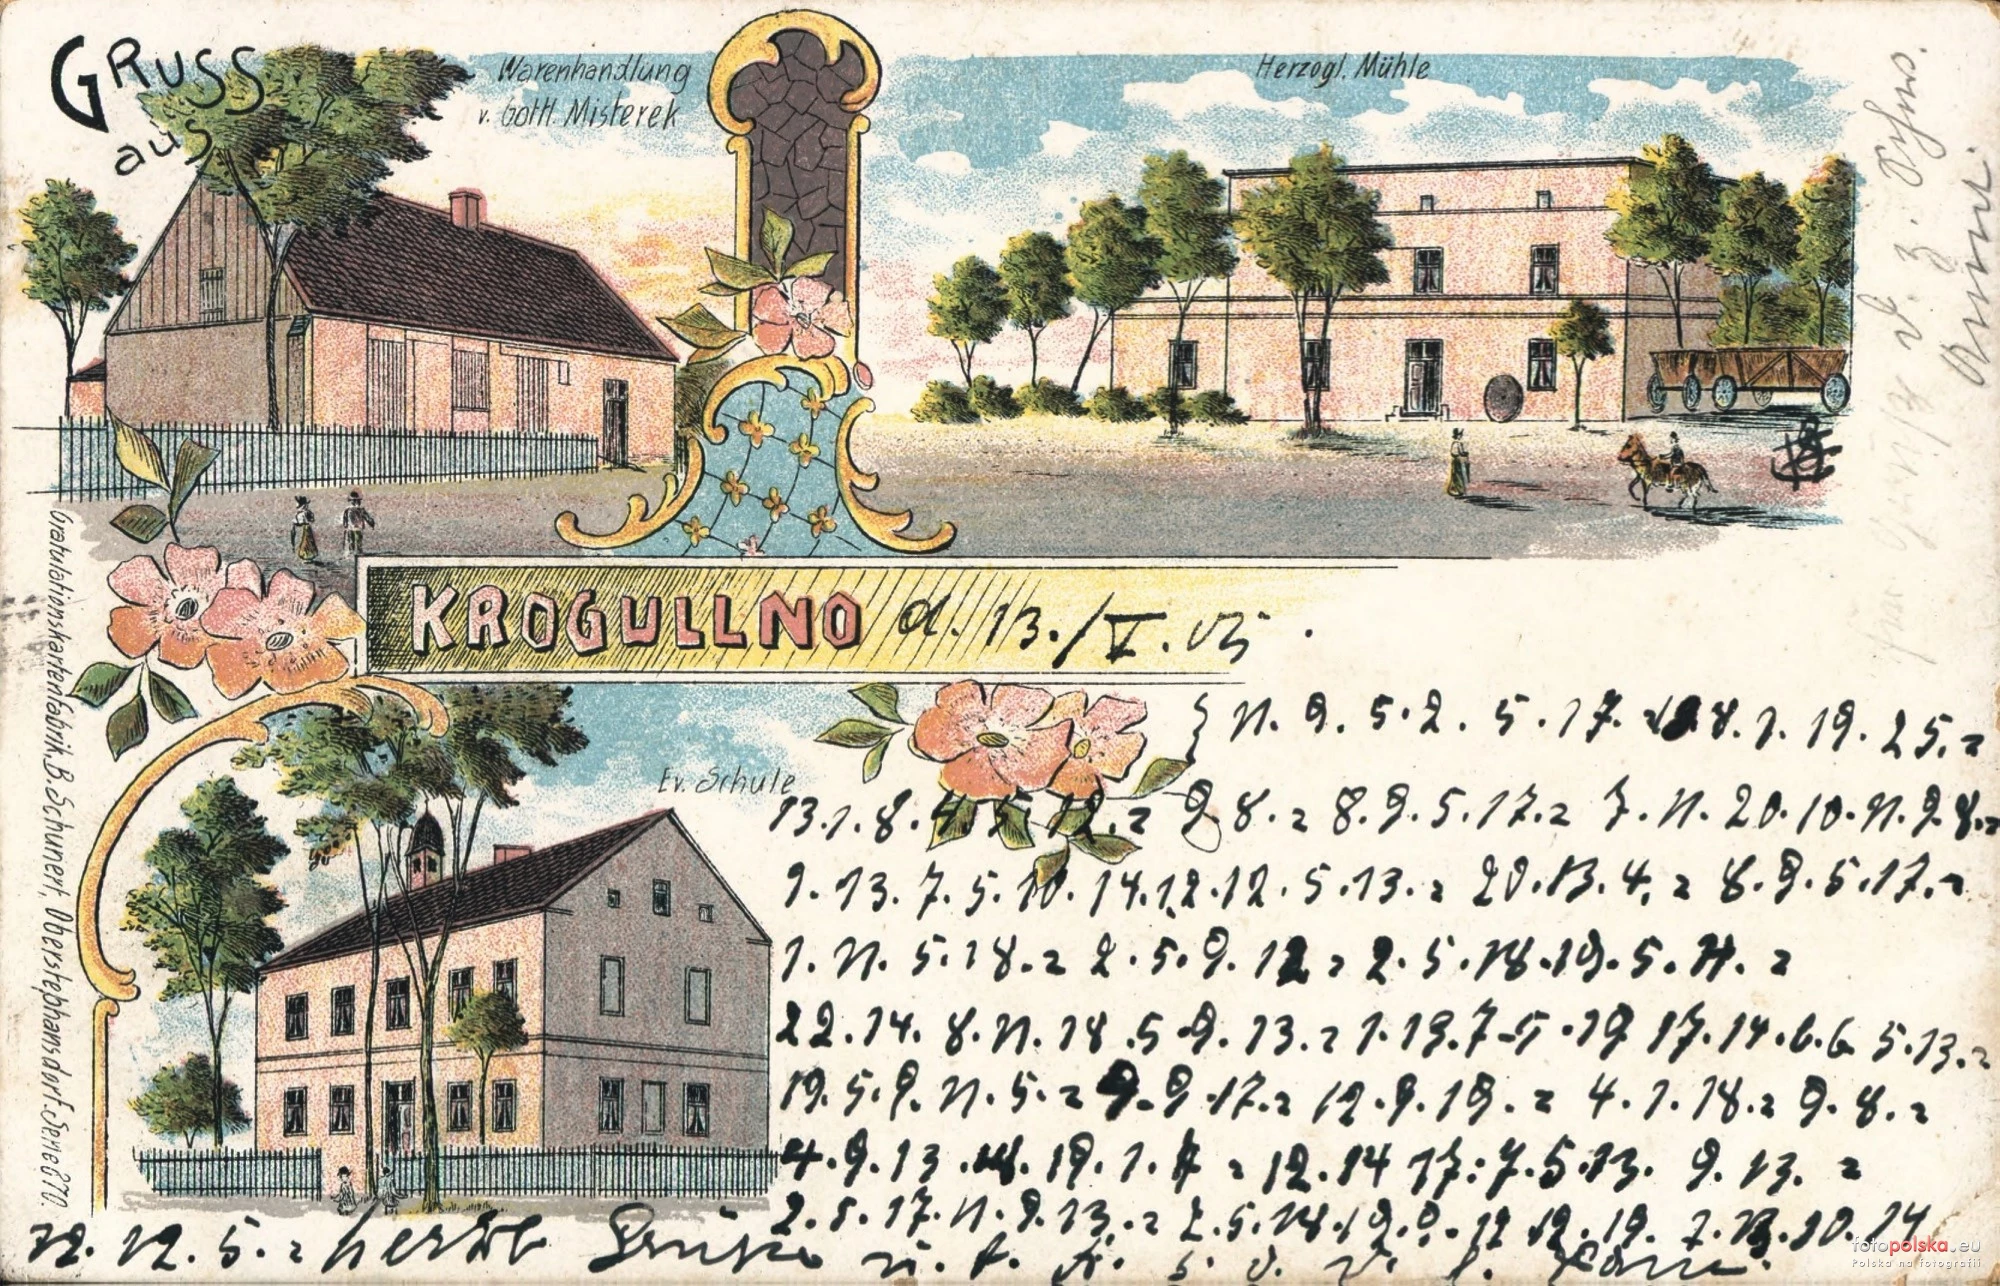 GRUSS
aus
Warenhandlung
v. Gottl. Misterek
Herzogl. Mühle
KROGULLNO d. 13./V. 05.
Ev. Schule
Gratulationskartenfabrik B. Schunert, Oberstephansdorf. Serie 670.
11. 9. 5. 2. 5. 17. 8. 1. 19. 25. =
13. 1. 8. 4. 5. 12. = 9 8. = 8. 9. 5. 17. = 7. 11. 20. 10. 11. 9. 8. =
1. 13. 7. 5. 10. 14. 12. 12. 5. 13. = 20. 13. 4. = 8. 9. 5. 17. =
1. 11. 5. 18. = 2. 5. 9. 12 = 2. 5. 18. 19. 5. 11. =
22. 14. 8. 11. 18. 5. 9. 13. = 1. 13. 7. 5. 19 17. 14. 6. 6 5. 13. =
19. 5. 9. 11. 5. = 9. 9. 17. = 12. 9. 19. = 4. 1. 18. = 9. 8. =
4. 9. 13. 19. 1. = 12. 14 17. 7. 5. 13. 9. 13. =
2. 5. 17. 11. 9. 13. = 2. 5. 18. 19. 9. 12 12. 19. 10. 14
12. 5. = herzl. Grüße
fotopolska.eu
Polska na fotografii